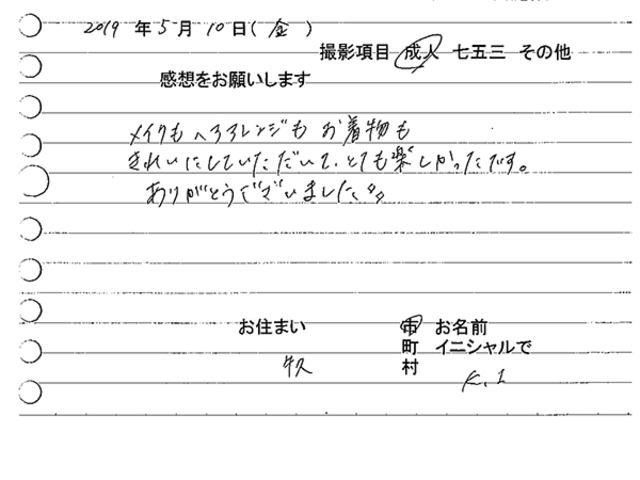 2019年5月10日(金)
撮影項目 成人 七五三 その他
感想をお願いします
メイクもヘアアレンジもお着物も
きれいにしていただいて、とても楽しかったです。
ありがとうございました
お住まい 市 お名前
町 イニシャルで
村
K.I